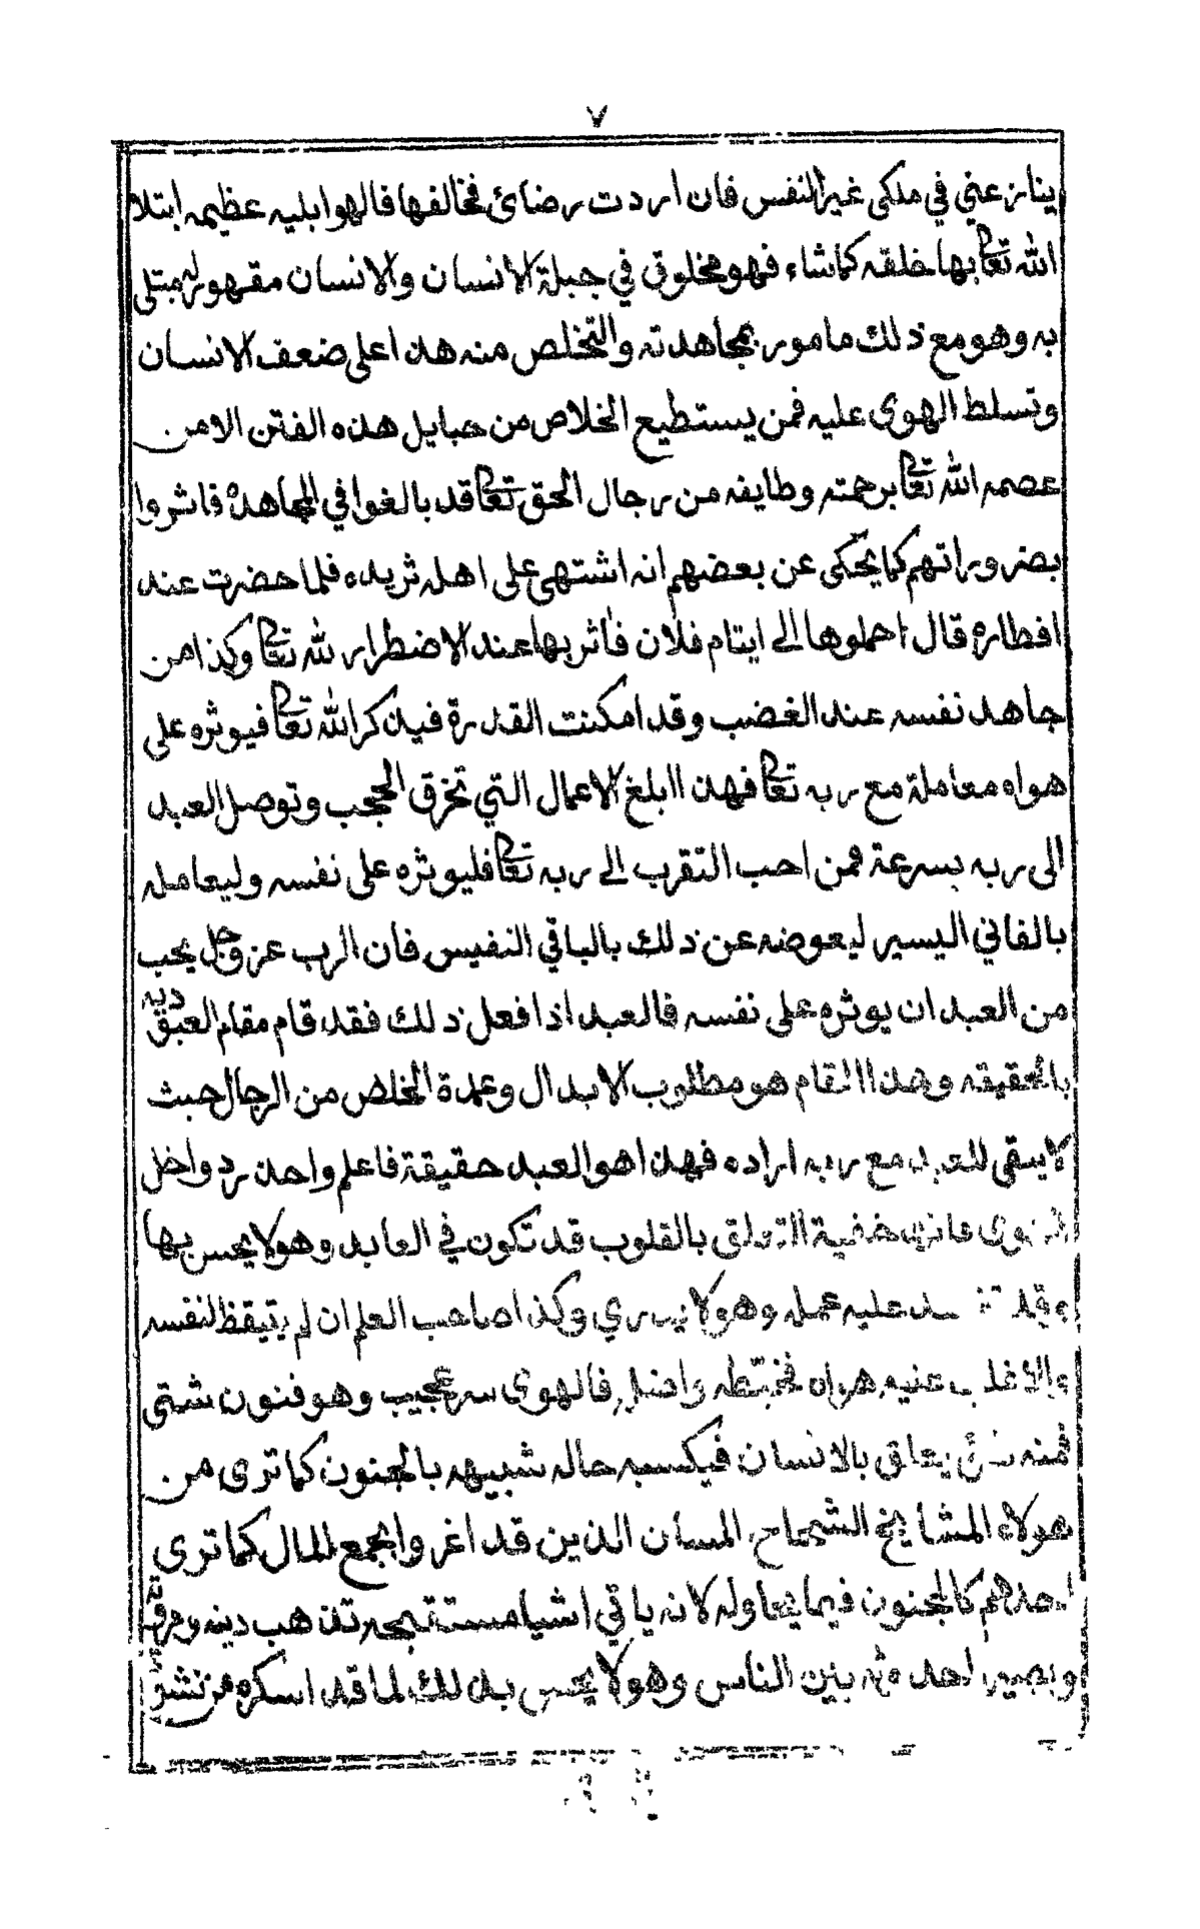 ٧
ينازعني في ملكى غير النفس فان اردت رضائ فخالفها فالهوا بليه عظيمه ابتلا
الله تعا بها خلقه كما شاء فهو مخلوق في جبلة الانسان والانسان مقهور له مبتلى
به وهو مع ذلك مامور بمجاهدته والتخلص منه هذا على ضعف الانسان
وتسلط الهوى عليه فمن يستطيع الخلاص من حبايل هذه الفتن الا من
عصمه الله تعا برحمته وطايفه من رجال الحق تعا قد بالغوا في المجاهدة فاثروا
بضروراتهم كما يحكى عن بعضهم انه اشتهى على اهله ثريده فلما حضرت عند
افطاره قال احملوها الى ايتام فلان فاثر بها عند الاضطرار لله تعا وكذا من
جاهد نفسه عند الغضب وقد امكنت القدرة فيذكر الله تعا فيوثره على
هواه معاملة مع ربه تعا فهذا ابلغ الاعمال التي تخرق الحجب وتوصل العبد
الى ربه بسرعة فمن احب التقرب الى ربه تعا فليوثره على نفسه وليعامله
بالفاني اليسير ليعوضه عن ذلك بالباقي النفيس فان الرب عز وجل يحب
من العبد ان يوثره على نفسه فالعبد اذا فعل ذلك فقد قام مقام العبوديه
بالحقيقه وهذا المقام هو مطلوب الابدال وعمدة الخلص من الرجال حيث
لا يبقى للعبد مع ربه اراده فهذا هو العبد حقيقة فاعلم واحذر دواخل
الهوى فانها خفية التعلق بالقلوب قد تكون في العابد وهو لا يحس بها
وقد عليه عمله وهو لا يدري وكذا صاحب العلم ان لم يتيقظ لنفسه
والا غلب عليه هواه فخبطه واضله فالهوى سر عجيب وهو فنون شتى
فمنه فن يعلق بالانسان فيكسبه حاله شبيهه بالجنون كما ترى من
هولاء المشايخ الشماح المسان الذين قد اغروا بجمع المال كما ترى
احدهم كالمجنون فيما يحاوله لانه ياتي اشيا مستقبحه تذهب دينه ومروته
ويصير احدوثه بين الناس وهو لا يحس بذلك لما قد اسكره من